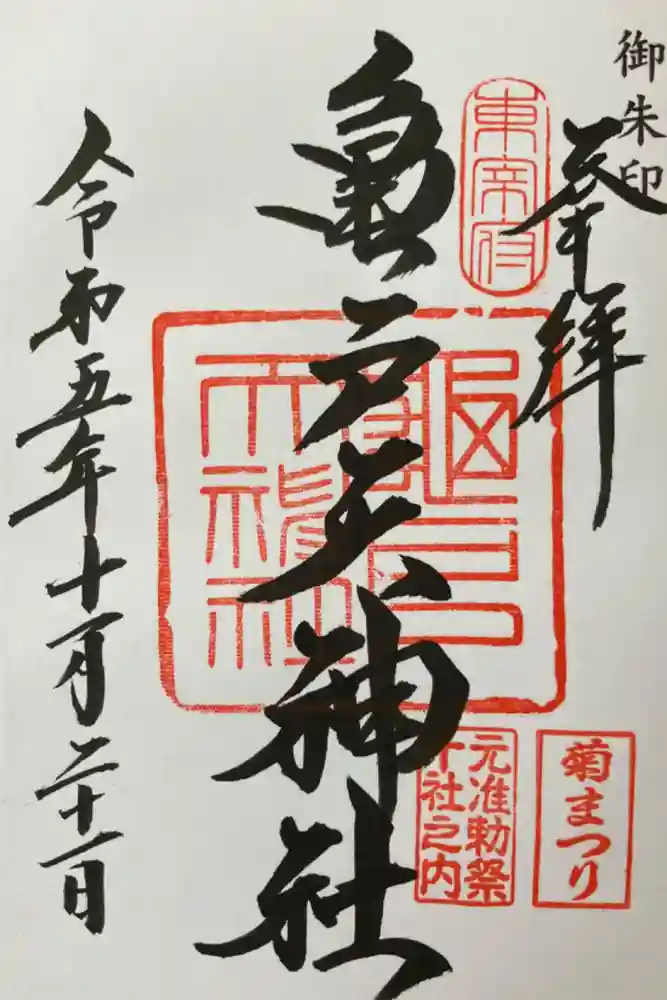 御朱印
奉拝
東宰府
亀戸天神社
龜戸
天神社
菊まつり
元准勅祭
十社之内
令和五年十一月二十一日